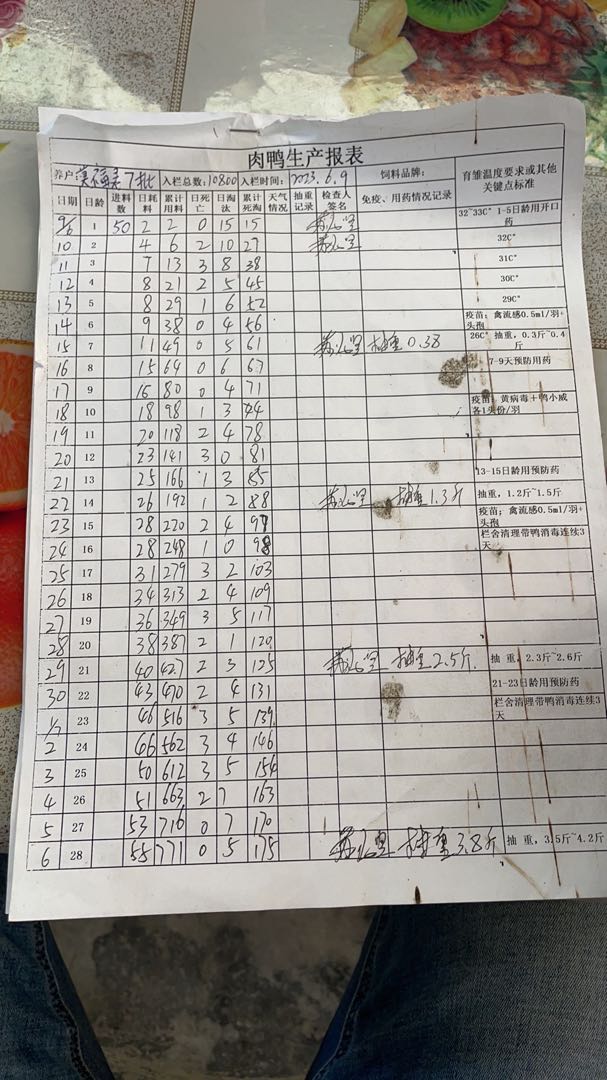 肉鸭生产报表
养户: 福 7批 入栏总数: 10800 入栏时间: 2023.6.9 饲料品牌: 育雏温度要求或其他关键点标准
日期 日龄 进料数 日耗料 累计用料 日死亡 日淘汰 累计死淘 天气情况 抽重记录 检查人签名 免疫、用药情况记录
9/6 1 50 2 2 0 15 15 32~33C° 1-5日龄用开口药
10 2 4 6 2 10 27 32C°
11 3 7 13 3 8 38 31C°
12 4 8 21 2 5 45 30C°
13 5 8 29 1 6 52 29C°
14 6 9 38 0 4 56 疫苗：禽流感0.5ml/羽+头孢
15 7 11 49 0 5 61 抽重0.38 26C° 抽重，0.3斤~0.4斤
16 8 15 64 0 6 67 7-9天预防用药
17 9 16 80 0 4 71
18 10 18 98 1 3 74 疫苗：黄病毒+鸭小威各1头份/羽
19 11 20 118 2 4 78
20 12 23 141 3 0 81
21 13 25 166 1 3 85 13-15日龄用预防药
22 14 26 192 1 2 88 抽重1.3斤 抽重，1.2斤~1.5斤
23 15 28 220 2 4 97 疫苗；禽流感0.5ml/羽+头孢
24 16 28 248 1 0 98 栏舍清理带鸭消毒连续3天
25 17 31 279 3 2 103
26 18 34 313 2 4 109
27 19 36 349 3 5 117
28 20 38 387 2 1 120
29 21 40 427 2 3 125 抽重2.5斤. 抽 重，2.3斤~2.6斤
30 22 43 470 2 4 131 21-23日龄用预防药
1/7 23 46 516 3 5 139 栏舍清理带鸭消毒连续3天
2 24 46 562 3 4 146
3 25 50 612 3 5 154
4 26 51 663 2 7 163
5 27 53 716 0 7 170
6 28 55 771 0 5 175 抽重3.8斤 抽 重，3.5斤~4.2斤